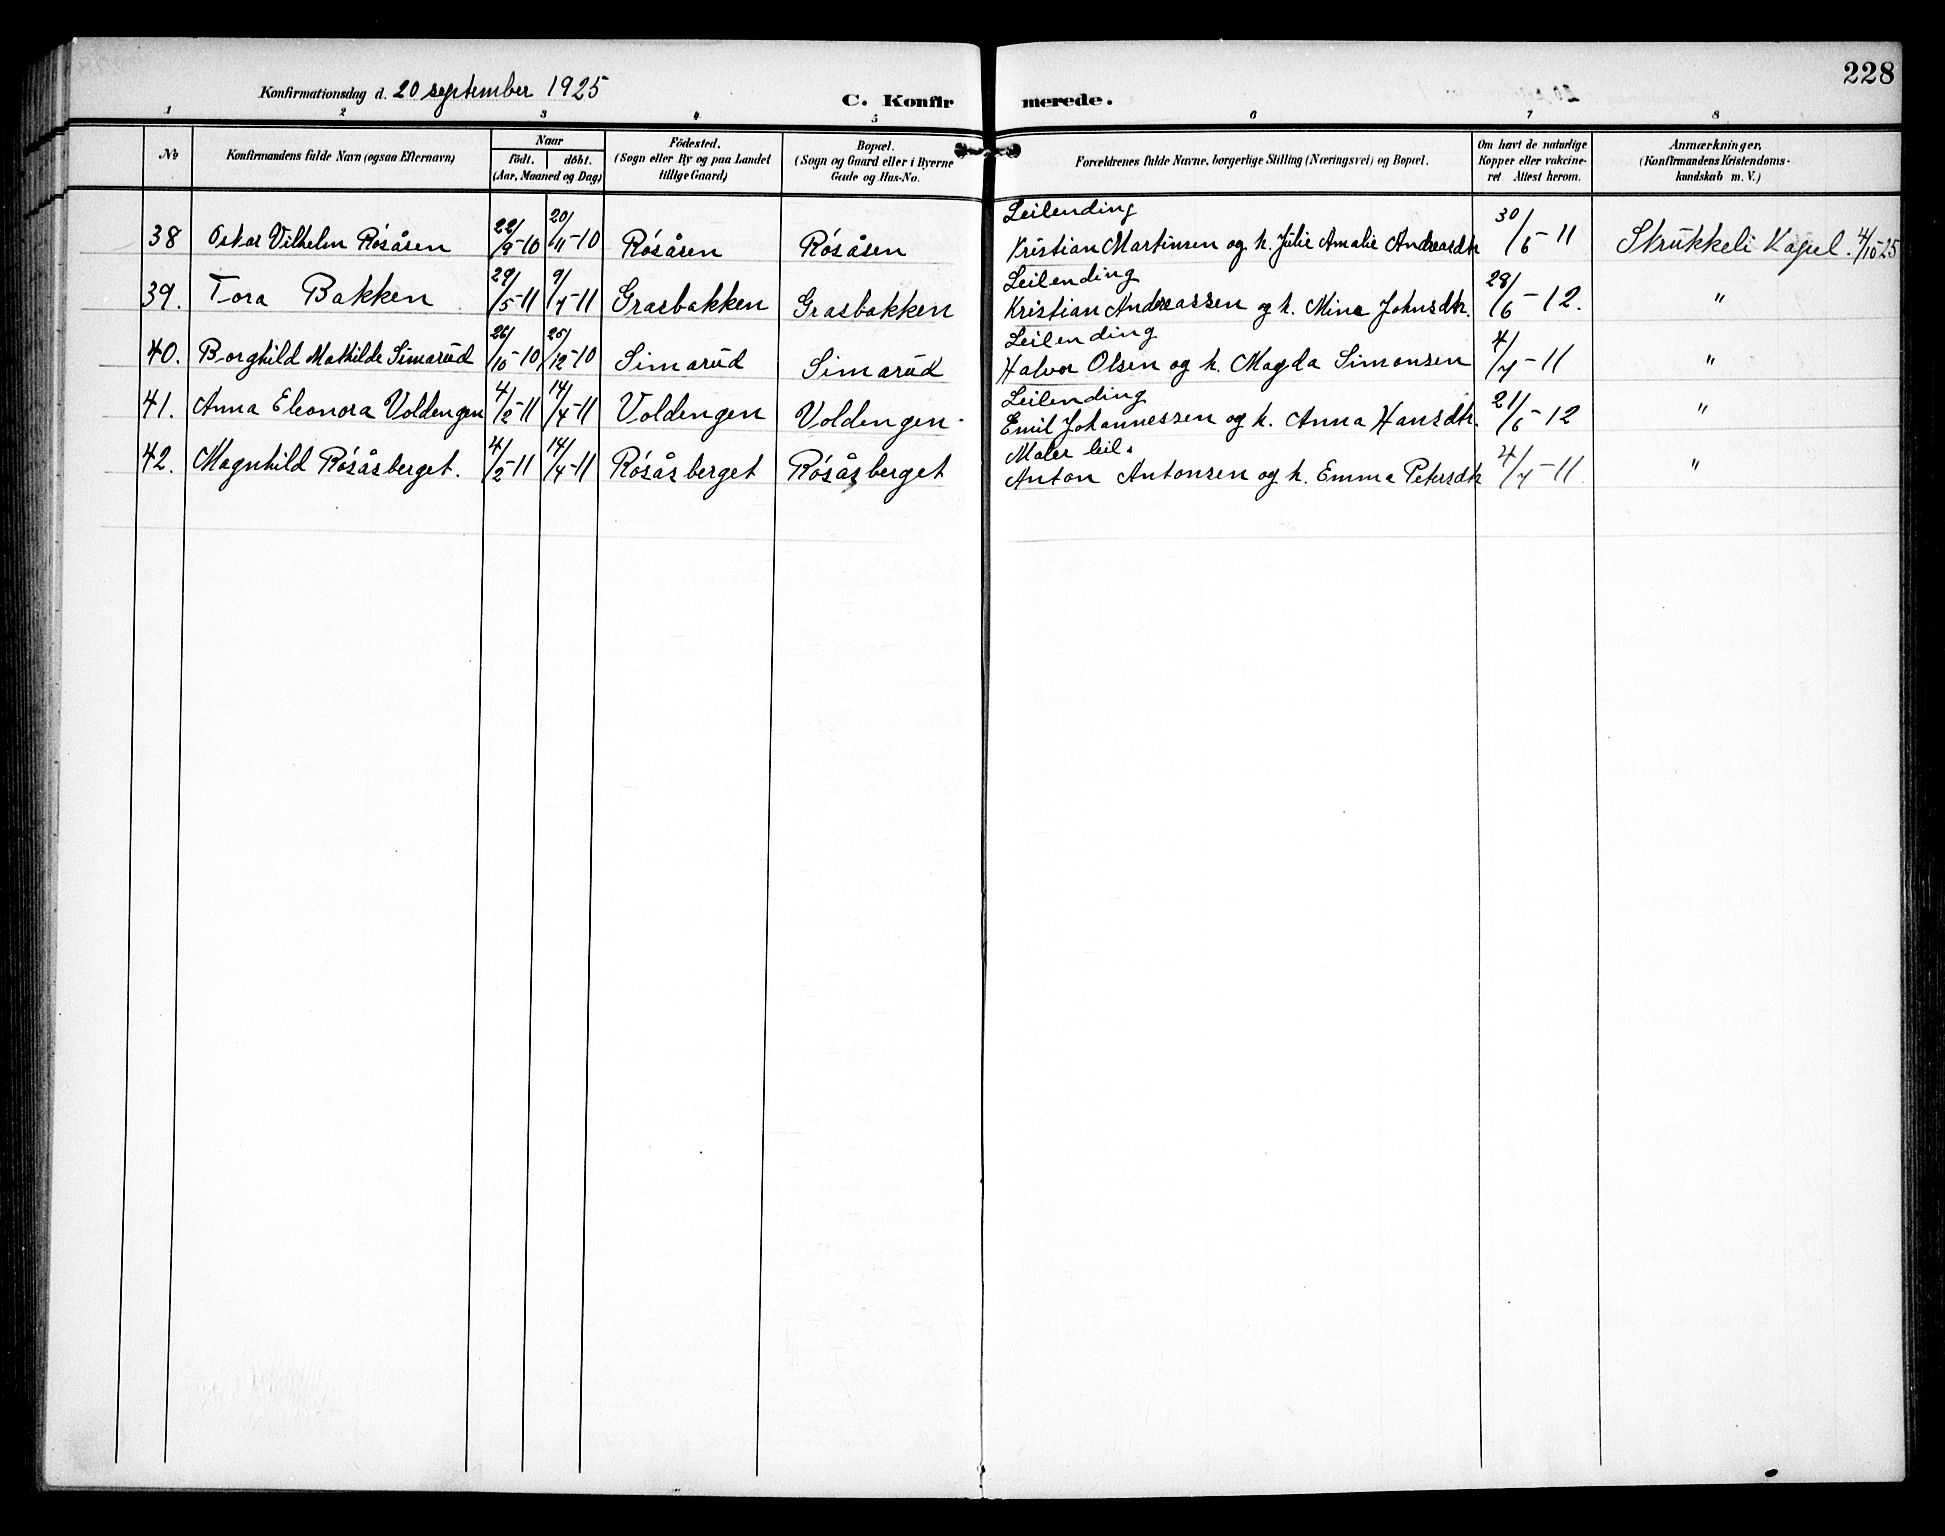 228
Konfirmationsdag d. 20 september 1925
C. Konfirmerede.
1 2 3 4 5 6 7 8
No
Konfirmandens fulde Navn (ogsaa Efternavn)
Naar
födt. döbt.
(Aar, Maaned og Dag)
Födested.
(Sogn eller By og paa Landet
tillige Gaard)
Bopæl.
(Sogn og Gaard eller i Byerne
Gade og Hus-No.
Forældrenes fulde Navne, borgerlige Stilling (Næringsvei) og Bopæl.
Om havt de naturlige
Kopper eller vaccine-
ret Attest herom.
Anmærkninger.
(Konfirmandens Kristendoms-
kundskab m. V.)
Leilending
38 Oskar Vilhelm Røsåsen 22/9-10 20/11-10 Røsåsen Røsåsen Kristian Martinsen og h. Julie Amalie Andreasdtr 30/6-11 Skrukkeli Kapel. 4/10-25
Leilending
39. Tora Bakken 29/5-11 9/7-11 Grasbakken Grasbakken Kristian Andreassen og h. Mina Johnsdtr. 28/6-12. "
Leilending
40. Borghild Mathilde Simarud 26/10-10 25/12-10 Simarud Simarud Halvor Olsen og h. Magda Simonsen 4/7-11 "
Leilending
41. Anna Eleonora Voldengen 4/2-11 14/4-11 Voldengen Voldengen Emil Johannessen og h. Anna Hansdtr. 21/6-12 "
Maler leil.
42. Magnhild Røsåsberget. 4/2-11 14/4-11 Røsåsberget Røsåsberget Anton Antonsen og h. Emma Petersdtr 4/7-11 "